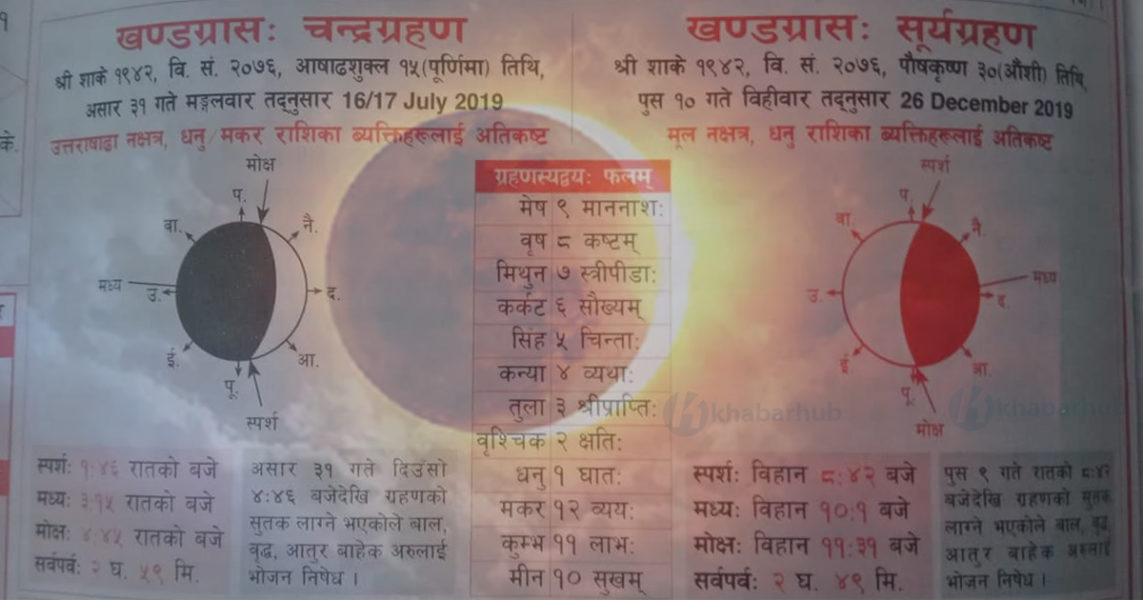 खण्डग्रासः चन्द्रग्रहण
श्री शाके १९४२, वि. सं. २०७६, आषाढशुक्ल १५(पूर्णिमा) तिथि,
असार ३१ गते मङ्गलवार तद्नुसार 16/17 July 2019
उत्तराषाढा नक्षत्र, धनु/मकर राशिका ब्यक्तिहरूलाई अतिकष्ट
मोक्ष
प.
वा.
नै.
मध्य
उ.
द.
ई.
आ.
पू.
स्पर्श
स्पर्शः १:४६ रातको बजे
मध्यः ३:१५ रातको बजे
मोक्षः ४:४५ रातको बजे
सर्वपर्वः २ घ. ५९ मि.
असार ३१ गते दिउँसो
४:४६ बजेदेखि ग्रहणको
सुतक लाग्ने भएकोले बाल,
वृद्ध, आतुर बाहेक अरुलाई
भोजन निषेध ।
ग्रहणस्यद्वयः फलम्
मेष ९ माननाशः
वृष ८ कष्टम्
मिथुन ७ स्त्रीपीडाः
कर्कट ६ सौख्यम्
सिंह ५ चिन्ताः
कन्या ४ व्यथाः
तुला ३ श्रीप्राप्तिः
वृश्चिक २ क्षतिः
धनु १ घातः
मकर १२ व्ययः
कुम्भ ११ लाभः
मीन १० सुखम्
खण्डग्रासः सूर्यग्रहण
श्री शाके १९४२, वि. सं. २०७६, पौषकृष्ण ३०(औंशी) तिथि,
पुस १० गते विहीवार तद्नुसार 26 December 2019
मूल नक्षत्र, धनु राशिका ब्यक्तिहरूलाई अतिकष्ट
स्पर्श
प.
वा.
नै.
मध्य
उ.
द.
ई.
आ.
पू.
मोक्ष
khabarhub
khabarhub
स्पर्शः विहान ८:४२ बजे
मध्यः विहान १०:१ बजे
मोक्षः विहान ११:३१ बजे
सर्वपर्वः २ घ. ४९ मि.
पुस ९ गते रातको ८:४२
बजेदेखि ग्रहणको सुतक
लाग्ने भएकोले बाल, वृद्ध,
आतुर बाहेक अरुलाई
भोजन निषेध ।
के.